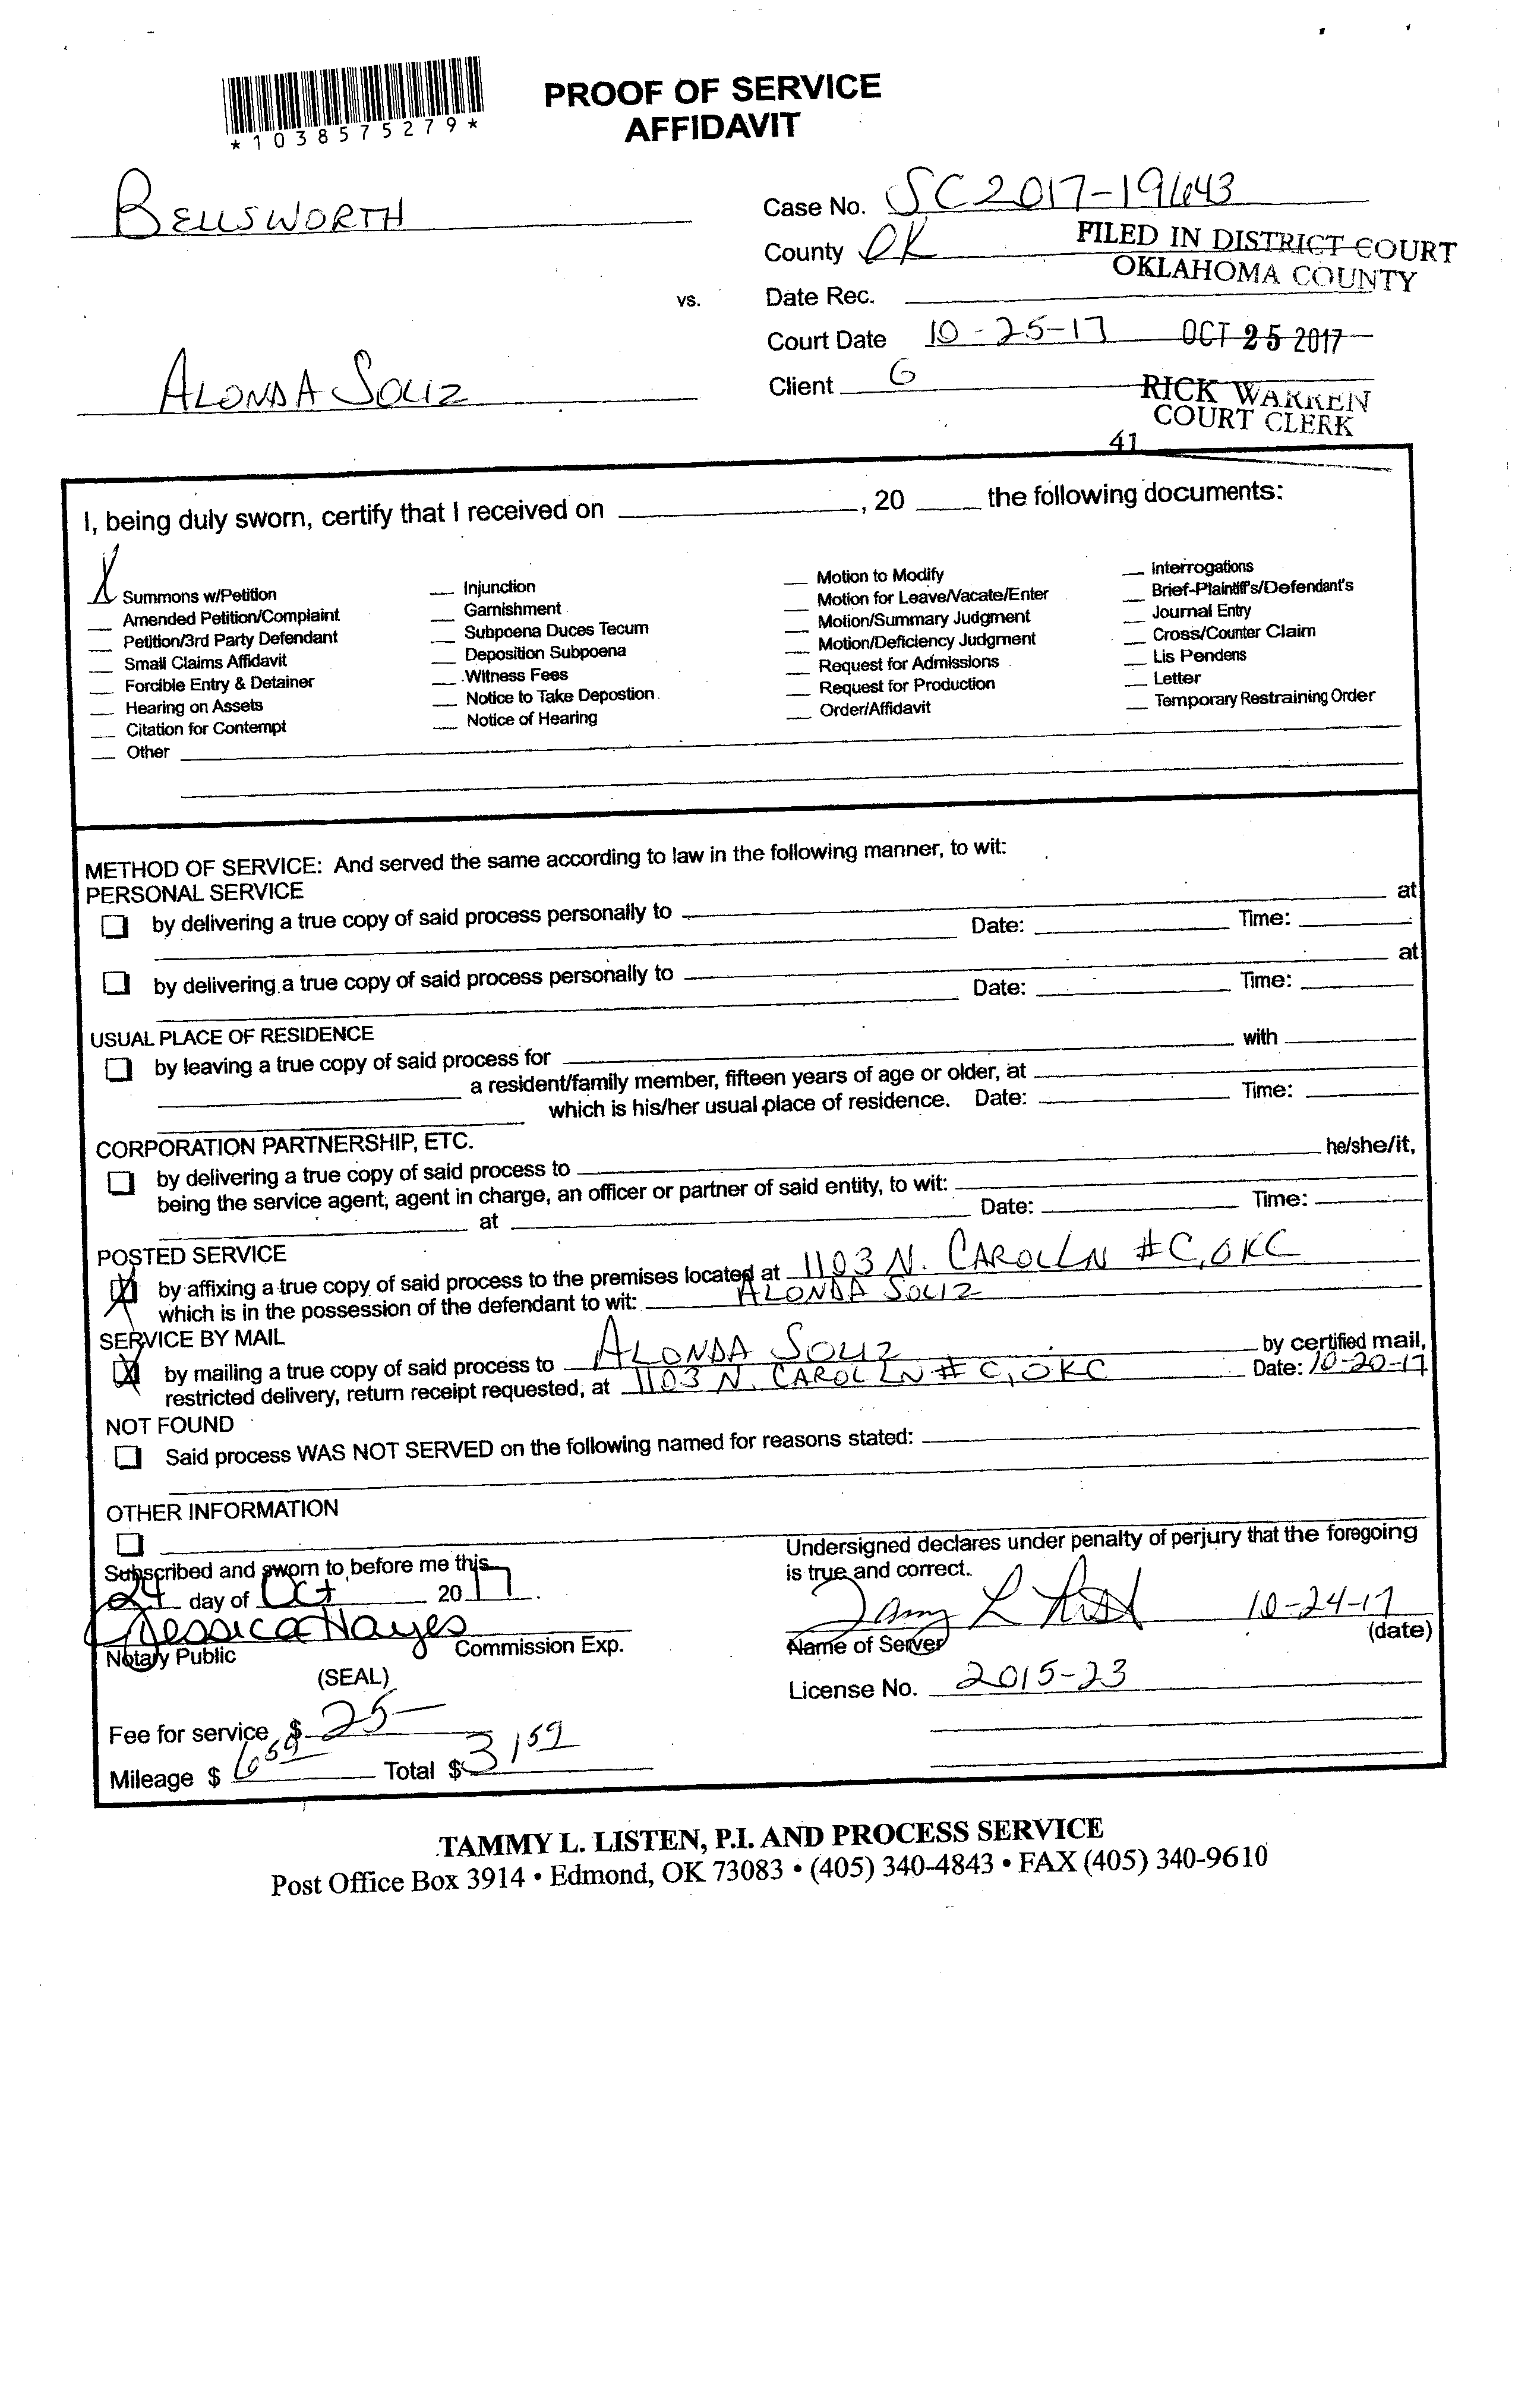 PROOF OF SERVICE
AFFIDAVIT
*1038575279*
BELLSWORTH
Case No. SC2017-19643
County OK
FILED IN DISTRICT COURT
OKLAHOMA COUNTY
vs.
Date Rec.
Court Date 10-25-17 OCT 25 2017
ALONDA SOLIZ
Client G
RICK WARREN
COURT CLERK
41
I, being duly sworn, certify that I received on ____, 20 ____ the following documents:
X Summons w/Petition
__ Amended Petition/Complaint
__ Petition/3rd Party Defendant
__ Small Claims Affidavit
__ Forcible Entry & Detainer
__ Hearing on Assets
__ Citation for Contempt
__ Other
__ Injunction
__ Garnishment
__ Subpoena Duces Tecum
__ Deposition Subpoena
__ Witness Fees
__ Notice to Take Depostion
__ Notice of Hearing
__ Motion to Modify
__ Motion for Leave/Vacate/Enter
__ Motion/Summary Judgment
__ Motion/Deficiency Judgment
__ Request for Admissions
__ Request for Production
__ Order/Affidavit
__ Interrogations
__ Brief-Plaintiff's/Defendant's
__ Journal Entry
__ Cross/Counter Claim
__ Lis Pendens
__ Letter
__ Temporary Restraining Order
METHOD OF SERVICE: And served the same according to law in the following manner, to wit:
PERSONAL SERVICE
by delivering a true copy of said process personally to ____ at
Date: ____ Time: ____
by delivering a true copy of said process personally to ____ at
Date: ____ Time: ____
USUAL PLACE OF RESIDENCE
by leaving a true copy of said process for ____ with ____
a resident/family member, fifteen years of age or older, at ____
which is his/her usual place of residence. Date: ____ Time: ____
CORPORATION PARTNERSHIP, ETC.
by delivering a true copy of said process to ____ he/she/it,
being the service agent, agent in charge, an officer or partner of said entity, to wit: ____
at ____ Date: ____ Time: ____
POSTED SERVICE
X by affixing a true copy of said process to the premises located at 1103 N. CAROL LN #C, OKC
which is in the possession of the defendant to wit: ALONDA SOLIZ
SERVICE BY MAIL
X by mailing a true copy of said process to ALONDA SOLIZ by certified mail,
restricted delivery, return receipt requested, at 1103 N. CAROL LN # C, OKC Date: 10-20-17
NOT FOUND
Said process WAS NOT SERVED on the following named for reasons stated:
OTHER INFORMATION
Subscribed and sworn to before me this
24 day of Oct 2017.
Jessica Hayes
Notary Public Commission Exp.
(SEAL)
Fee for service $ 25-
Mileage $ 6 59 Total $ 31 59
Undersigned declares under penalty of perjury that the foregoing
is true and correct.
Tammy L 10-24-17
Name of Server (date)
License No. 2015-23
TAMMY L. LISTEN, P.I. AND PROCESS SERVICE
Post Office Box 3914 • Edmond, OK 73083 • (405) 340-4843 • FAX (405) 340-9610